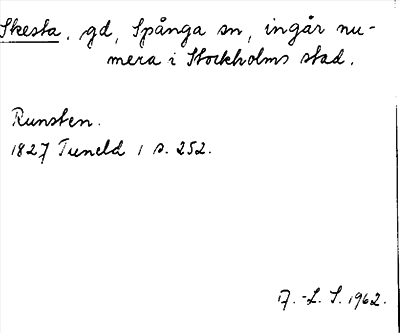 Skesta, gd, Spånga sn, ingår nu-
mera i Stockholms stad.
Runsten.
1827 Tuneld 1 s. 252.
A.-L. S. 1962.